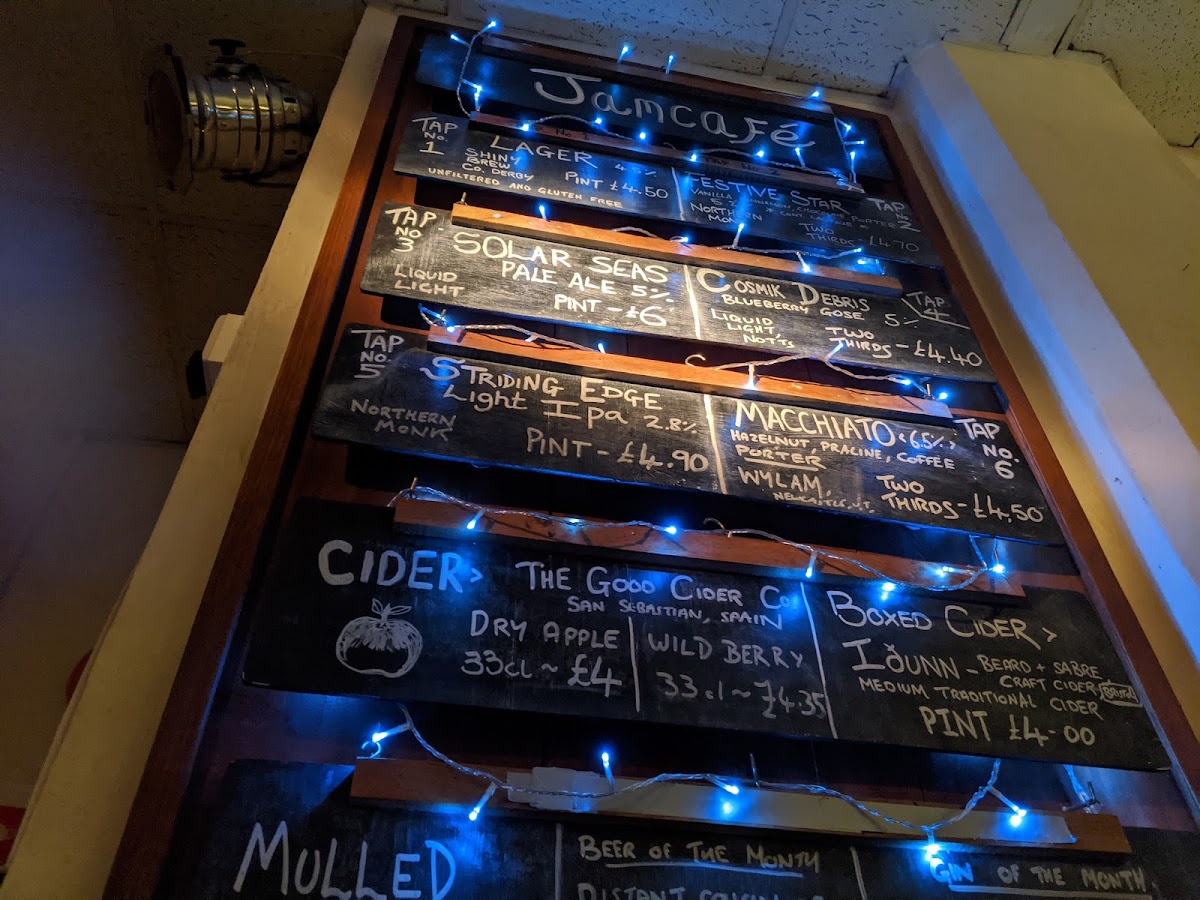 Jamcafé
TAP No. 1
LAGER 4.5%
SHINY BREW CO. DERBY
PINT £4.50
UNFILTERED AND GLUTEN FREE
FESTIVE STAR
TAP No. 2
VANILLA
PORTER
NORTHERN MONK
TWO THIRDS £4.70
TAP NO. 3
SOLAR SEAS
PALE ALE 5%
LIQUID LIGHT
PINT - £6
COSMIK DEBRIS
BLUEBERRY GOSE 5%
TAP 4
LIQUID LIGHT, NOTTS
TWO THIRDS - £4.40
TAP NO. 5
STRIDING EDGE
Light Ipa 2.8%
NORTHERN MONK
PINT - £4.90
MACCHIATO 6.5%
TAP NO. 6
HAZELNUT, PRALINE, COFFEE
PORTER
WYLAM,
TWO THIRDS - £4.50
CIDER >
THE GOOD CIDER Co
SAN SEBASTIAN, SPAIN
DRY APPLE
33cl ~ £4
WILD BERRY
33cl ~ £4.35
BOXED CIDER >
IÐUNN - BEARD + SABRE
CRAFT CIDER, BRISTOL
MEDIUM TRADITIONAL CIDER
PINT £4.00
MULLED
BEER OF THE MONTH
DISTANT
GIN OF THE MONTH